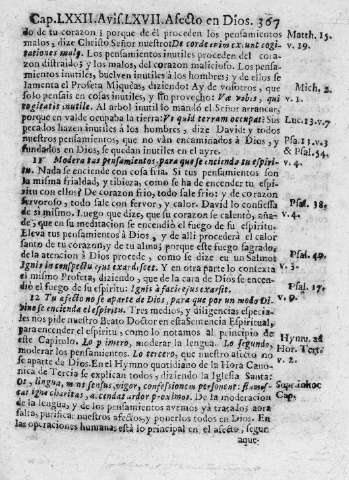 Cap. LXXII. Avis. LXVII. Afecto en Dios. 367
do de tu corazon; porque de él proceden los pensamientos
malos, dize Christo Señor nuestro: De corde exeunt cogi-
tationes malę. Los pensamientos inutiles proceden del cora-
zon distraido; y los malos, del corazon malicioso. Los pensa-
mientos inutiles, buelven inutiles á los hombres; y de ellos se
lamenta el Profeta Miquèas, diziendo: Ay de vosotros, que
solo pensais en cosas inutiles, y sin provecho: Væ vobis, qui
cogitatis inutile. Al arbol inutil mandó el Señor arrancar,
porque en valde ocupaba la tierra: Vt quid terram occupat? Sus
pecados hazen inutiles à los hombres, dize David: y todos
nuestros pensamientos, que no ván encaminados à Dios, y
fundados en Dios, se quedan inutiles en el ayre.
11 Modera tus pensamientos, para que se encienda tu espiri-
tu. Nada se enciende con cosa fria. Si tus pensamientos son
la misma frialdad, y tibieza, como se ha de encender tu espi-
ritu con ellos? De corazon frio, todo sale frio: y de corazon
fervoroso, todo sale con fervor, y calor. David lo confiessa
de si mismo. Luego que dize, que su corazon se calentó, aña-
de, que en su meditacion se encendió el fuego de su espiritu.
Eleva tus pensamientos à Dios, y de allí procederá el calor
santo de tu corazon, y de tu alma; porque este fuego sagrado,
de la atencion à Dios procede, como se dize en un Salmo:
Ignis in conspectu ejus exardescet. Y en otra parte lo contexta
el mismo Profeta, diziendo, que de la cara de Dios se encen-
dió el fuego de su espiritu: Ignis à facie ejus exarsit.
12 Tu afecto no se aparte de Dios, para que por un modo Di-
vino se encienda el espiritu. Tres medios, y diligencias especia-
les nos pide nuestro Beato Doctor en esta Sentencia Espiritual,
para encender el espiritu, como lo notamos al principio de
este Capitulo. Lo primero, moderar la lengua. Lo segundo,
moderar los pensamientos. Lo tercero, que nuestro afecto no
se aparte de Dios. En el Hymno quotidiano de la Hora Cano-
nica de Tercia se explican todos, diziendo la Iglesia Santa:
Os, lingua, mens, sensus, vigor, confessionem personent: flammes-
cat igne charitas, accendat ardor proximos. De la moderacion
de la lengua, y de los pensamientos avemos yá tratados aora
falta, purificar nuestros afectos, y ponerlos todos en Dios. En
las operaciones humanas està lo principal en el afecto, segun
aque-
Matth. 15.
v. 19.
Mich. 2.
v. 1.
Luc. 13. v. 7
Psa. 13. v. 3
& Psal. 54.
v. 4.
Psal. 38.
v. 4.
Psal. 49.
v. 3.
Psal. 17.
v. 9.
Hymn. ad
Hor. Tert.
v. 2.
Supr. in hoc
Cap.